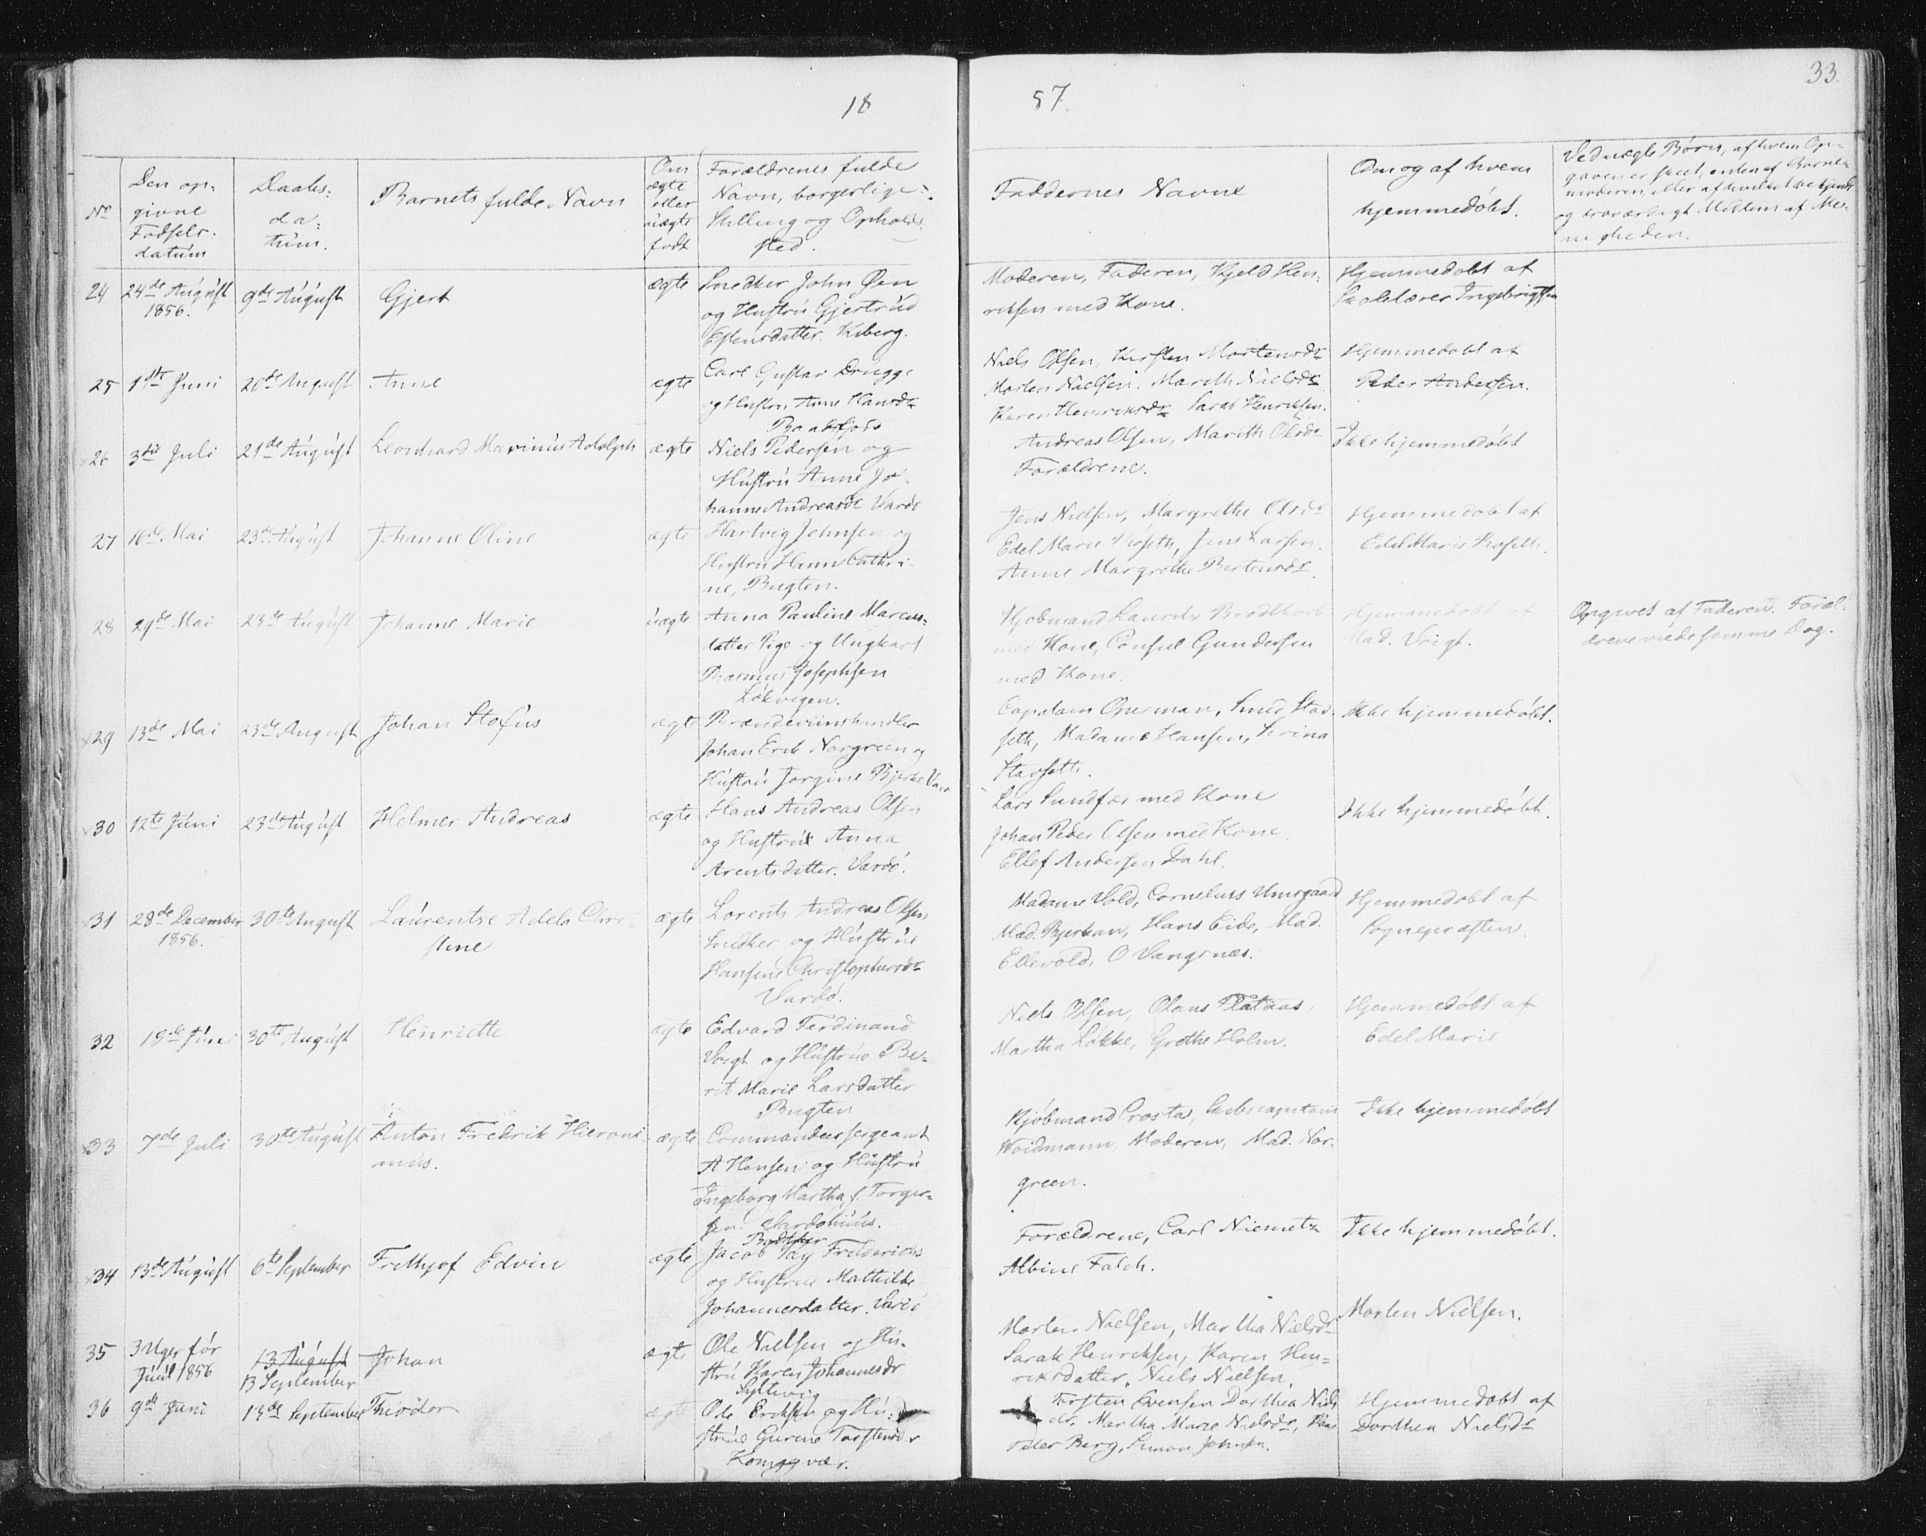 18
57.
33.
No
Den op-
givne
Fødsels-
datum
Daabs-
da-
tum.
Barnets fulde Navn
Om
ægte
eller
uægte
født
Forældrenes fulde
Navn, borgerlige
Stilling og Opholds
sted.
Faddernes Navne
Om og af hvem
hjemmedøbt.
Ved uægte Børn, af hvem Op-
gaven er skeet, enten af Barne-
moderen, eller af hvilket bekjendt
og troværdigt Medlem af Me-
nigheden.
24
24de August
1856.
9de August
Gjert
ægte
Snedker John Øen
og Hustru Gjertrud
Estensdatter. Kiberg.
Moderen, Faderen, Kjeld Hen-
riksen med Kone.
Hjemmedøbt af
Skolelærer Ingebrigtsen
25
1ste Juni
20de August
Anne
ægte
Carl Gustav Drugge
og Hustru Anne Hansdr
Baadsfjord
Niels Olsen, Kirsten Mortensdr
Morten Nielsen. Marith Nielsdr
Karen Henriksdr Sarah Henriksen.
Hjemmedøbt af
Peder Andersen.
26
3die Juli
21de August
Leonhard Marinius Adolph
ægte
Niels Pedersen og
Hustru Anne Jo-
hanne Andreasdr Vardø
Andreas Olsen, Marith Olsdr
Forældrene.
Ikke hjemmedøbt
27
16de Mai
23de August
Johanne Oline
ægte
Hartvig Johnsen og
Hustru Hanna Cathri-
ne, Bugten.
Jens Nielsen, Margrethe Olsdr
Edel Marie Kofseth, Jens Larsen.
Anne Margrethe Bertensdr.
Hjemmedøbt af
Edel Marie Kofseth.
28
29de Mai
23de August
Johanne Marie
uægte
Anna Pauline Marcus-
datter Pige og Ungkarl
Rasmus Josephsen
Løkvigen.
Kjøbmand Laurits Brodtkorb
med Kone, Consul Gundersen
med Kone.
Hjemmedøbt af
Mad. Voigt.
Opgivet af Faderen. Foræl-
drene viede samme Dag.
29
13de Mai
23de August
Johan Stofus
ægte
Brændeviinshandler
Johan Erik Norgreen og
Hustru Jørgine Bjerke Vardø
Capitain Operman, Smed Stav-
seth, Madame Hansen, Serina
Stavseth.
Ikke hjemmedøbt.
30
12te Juni
23de August
Helmer Andreas
ægte
Hans Andreas Olsen
og Hustrue Anna
Arentsdatter. Vardø.
Lars Sundfær med Kone
Johan Peder Olsen med Kone.
Ellef Andersen Dahl.
Ikke hjemmedøbt.
31
28de December
1856.
30te August
Laurentse Adela Chri-
stine
ægte
Lorents Andreas Olsen
Snedker og Hustrue
Hansine Christophersdr
Vardø.
Madame Vold, Cornelius Unsgaard
Mad. Bjerkan, Hans Eide, Mad.
Ellevold, O Vangsnæs.
Hjemmedøbt af
Sognepræsten.
32
19de Juni
30te August
Henriette
ægte
Edvard Ferdinand
Voigt og Hustrue Be-
rit Marie Larsdatter
Bugten
Niels Olsen, Olaus Flataas,
Martha Løkke, Grethe Holm.
Hjemmedøbt af
Edel Marie
33
7de Juli
30te August
Anton Fredrik Hieroni-
mus.
ægte
Commandeersergeant
A Hansen og Hustru
Ingeborg Martha f. Torger-
sen. Vardøhuus.
Kjøbmand Crosta, Skibscapitain
Woidmann, Moderen, Mad. Nor-
green.
Ikke hjemmedøbt
34
13de August
6te September
Frethjof Edvin
ægte
Bødtker
Jacob Fay Frederichs
og Hustrue Mathilde
Johannesdatter. Vardø
Forældrene, Carl Niemetz
Albine Falch.
Ikke hjemmedøbt.
35
3 Uger før
Juul 1856
13 August
13 September
Johan
ægte
Ole Nielsen og Hu-
stru Karen Johannesdr
Syltevig
Morten Nielsen, Martha Nielsdr
Sarah Henriksen, Karen Hen-
riksdatter, Niels Nielsen.
Morten Nielsen.
36
9de Juni
13de September
Theodor
ægte
Ole Eriksen og Hu-
strue Gurine Torstensdr
Kongsvær.
Torsten Svensen Dorthea Niels
dr. Martha Marie Nielsdr,
Peder Berg, Simon Johnsen.
Hjemmedøbt af
Dorthea Nielsdr